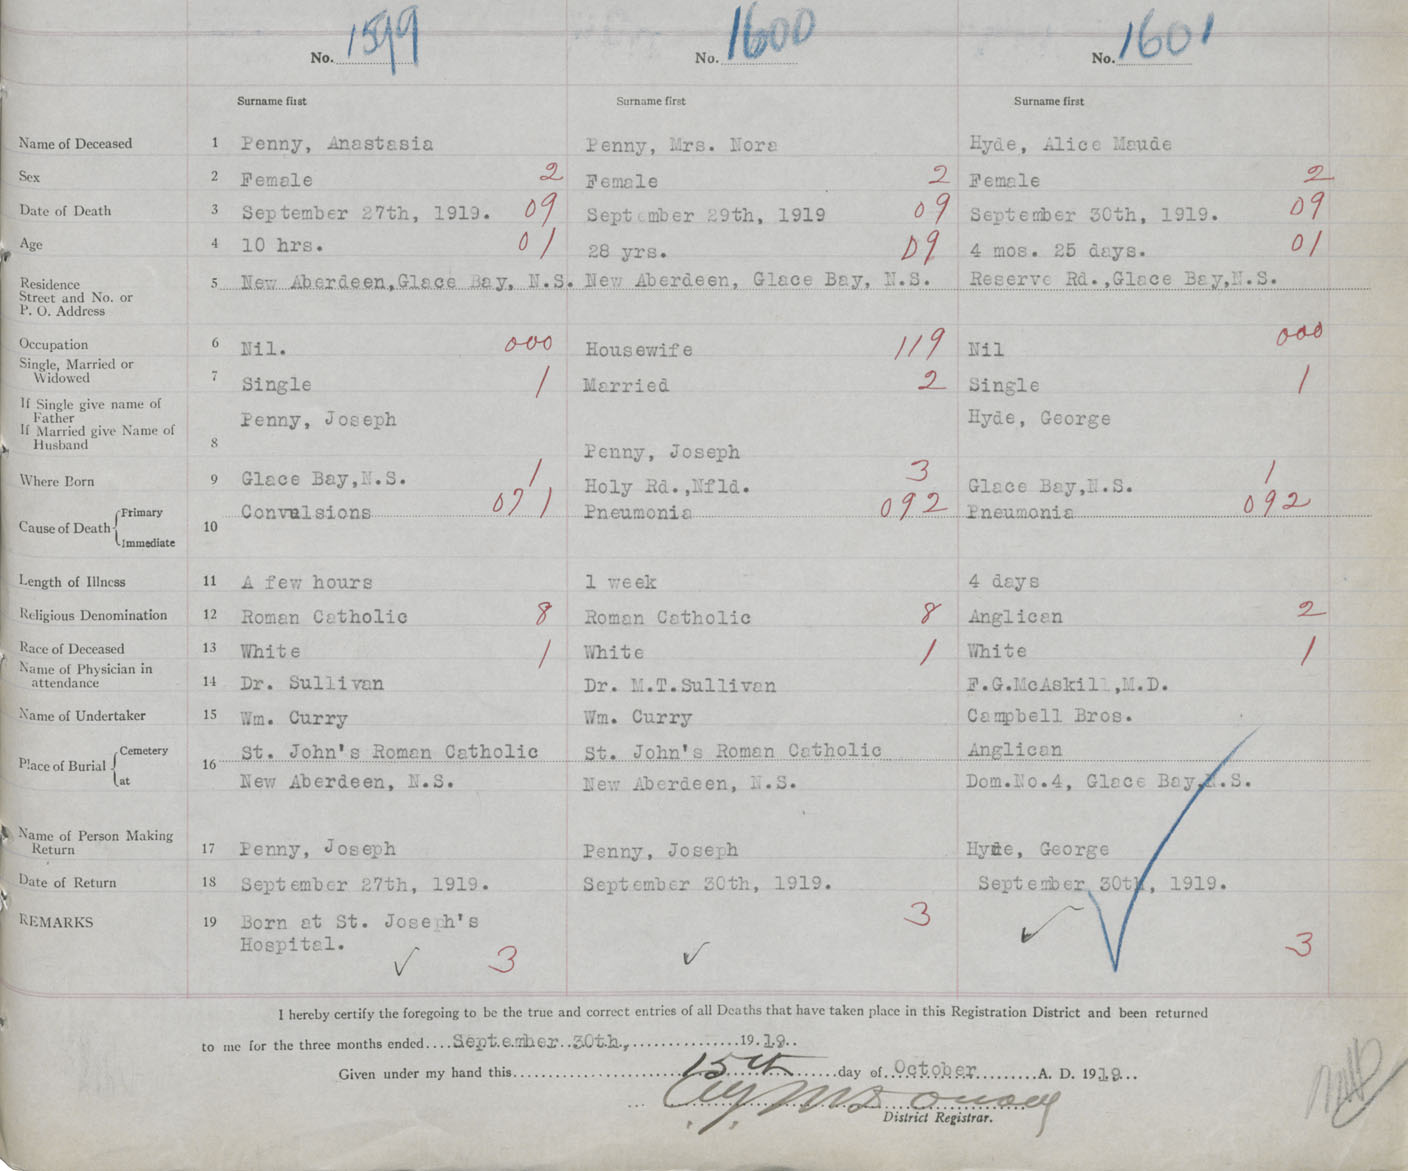 No. 1599 No. 1600 No. 1601
Surname first Surname first Surname first
Name of Deceased 1 Penny, Anastasia Penny, Mrs. Nora Hyde, Alice Maude
Sex 2 Female 2 Female 2 Female 2
Date of Death 3 September 27th, 1919. 09 September 29th, 1919 09 September 30th, 1919. 09
Age 4 10 hrs. 01 28 yrs. 09 4 mos. 25 days. 01
Residence
Street and No. or
P. O. Address
5 New Aberdeen,Glace Bay, N.S. New Aberdeen, Glace Bay, N.S. Reserve Rd.,Glace Bay,N.S.
Occupation 6 Nil. 000 Housewife 119 Nil 000
Single, Married or
Widowed
7 Single 1 Married 2 Single 1
If Single give name of
Father
If Married give Name of
Husband
8 Penny, Joseph Penny, Joseph Hyde, George
Where Born 9 Glace Bay,N.S. 1 Holy Rd.,Nfld. 3 Glace Bay,N.S. 1
Cause of Death Primary
Immediate
10 Convulsions 071 Pneumonia 092 Pneumonia 092
Length of Illness 11 A few hours 1 week 4 days
Religious Denomination 12 Roman Catholic 8 Roman Catholic 8 Anglican 2
Race of Deceased 13 White 1 White 1 White 1
Name of Physician in
attendance
14 Dr. Sullivan Dr. M.T.Sullivan F.G.McAskill,M.D.
Name of Undertaker 15 Wm. Curry Wm. Curry Campbell Bros.
Place of Burial Cemetery
at
16 St. John's Roman Catholic St. John's Roman Catholic Anglican
New Aberdeen, N.S. New Aberdeen, N.S. Dom.No.4, Glace Bay,N.S.
Name of Person Making
Return
17 Penny, Joseph Penny, Joseph Hyde, George
Date of Return 18 September 27th, 1919. September 30th, 1919. September 30th, 1919.
REMARKS 19 Born at St. Joseph's
Hospital.
3 3 3
I hereby certify the foregoing to be the true and correct entries of all Deaths that have taken place in this Registration District and been returned
to me for the three months ended....September 30th,...............1919..
Given under my hand this 15th day of October A. D. 1919...
District Registrar.